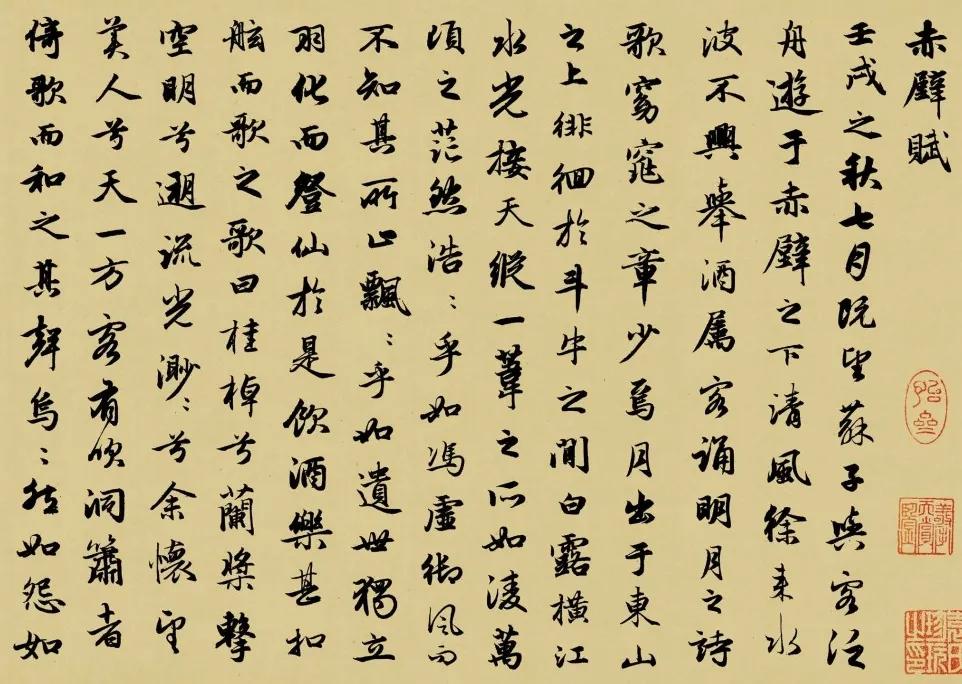 赤壁賦
壬戌之秋七月既望蘇子與客泛
舟遊于赤壁之下清風徐来水
波不興舉酒属客誦明月之詩
歌窈窕之章少焉月出于東山
之上徘徊於斗牛之間白露橫江
水光接天縱一葦之所如淩萬
頃之茫然浩〻乎如馮虛御風而
不知其所止飄〻乎如遺世獨立
羽化而登仙於是飲酒樂甚扣
舷而歌之歌曰桂棹兮蘭槳擊
空明兮遡流光渺〻兮余懷望
美人兮天一方客有吹洞簫者
倚歌而和之其聲烏〻然如怨如